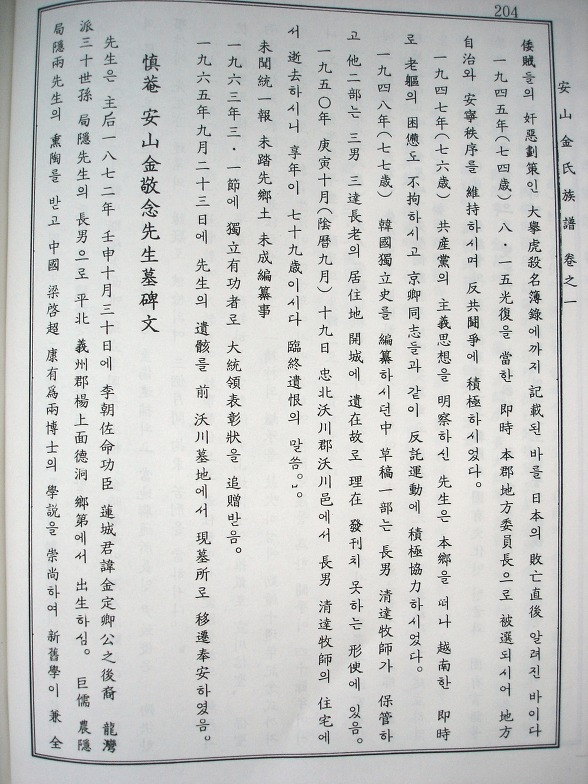 204
安山金氏族譜 卷之一
倭賊들의 奸惡劃策인 大擧虎殺名簿錄에까지 記載된 바를 日本의 敗亡直後 알려진 바이다
一九四五年(七四歲) 八·一五光復을 當한 卽時 本郡地方委員長으로 被選되시어 地方
自治와 安寧秩序를 維持하시며 反共鬪爭에 積極하시었다。
一九四七年(七六歲) 共産黨의 主義思想을 明察하신 先生은 本鄕을 떠나 越南한 卽時
로 老軀의 困憊도 不拘하시고 京鄕同志들과 같이 反託運動에 積極協力하시었다。
一九四八年(七七歲) 韓國獨立史를 編纂하시던中 草稿一部는 長男 淸達牧師가 保管하
고 他二部는 三男 三達長老의 居住地 開城에 遺在故로 現在 發刊치 못하는 形便에 있음。
一九五〇年 庚寅十月(陰曆九月) 十九日 忠北沃川郡沃川邑에서 長男 淸達牧師의 住宅에
서 逝去하시니 享年이 七十九歲이시다 臨終遺恨의 말씀。
未聞統一報 未踏先鄕土 未成編纂事
一九六三年三·一節에 獨立有功者로 大統領表彰狀을 追贈받음。
一九六五年九月二十三日에 先生의 遺骸를 前 沃川墓地에서 現墓所로 移遷奉安하였음。
愼菴 安山金敬念先生墓碑文
先生은 主后一八七二年 壬申十月三十日에 李朝佐命功臣 蓮城君諱金定卿公之後裔 龍灣
派三十世孫 局隱先生의 長男으로 平北 義州郡楊上面德洞 鄕第에서 出生하심。 巨儒 農隱
局隱兩先生의 薰陶를 받고 中國 梁啓超 康有爲兩博士의 學說을 崇尙하여 新舊學이 兼全